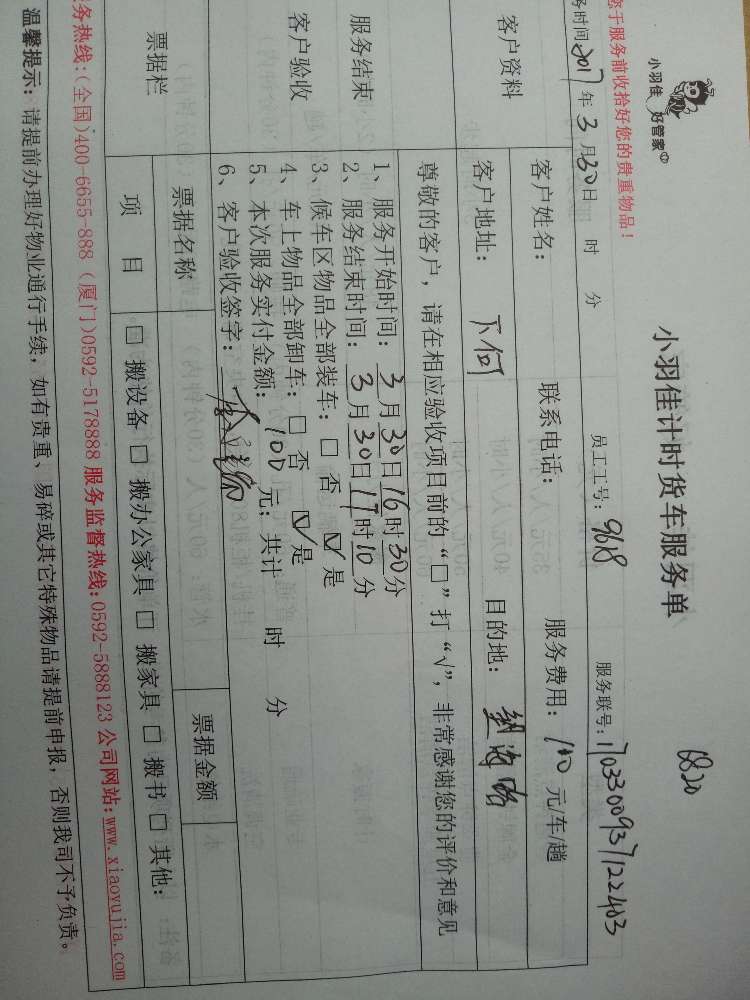 小羽佳 好管家
小羽佳计时货车服务单
6820
您于服务前收拾好您的贵重物品！
务时间2017年3月30日 时 分 员工工号：9618 服务联号：1703300937122403
客户资料
客户姓名： 联系电话： 服务费用：100元/车/趟
客户地址：下何 目的地：
服务结束 客户验收
尊敬的客户，请在相应验收项目前的“□”打“√”，非常感谢您的评价和意见
1、服务开始时间：3月30日16时30分
2、服务结束时间：3月30日17时10分
3、候车区物品全部装车：□ 否 ☑ 是
4、车上物品全部卸车：□ 否 ☑ 是
5、本次服务实付金额：100元；共计 时 分
6、客户验收签字：
票据栏
票据名称 票据金额
项 目 □ 搬设备 □ 搬办公家具 □ 搬家具 □ 搬书 □ 其他：
务热线：(全国)400-6655-888 (厦门)0592-5178888 服务监督热线：0592-5888123 公司网站：www.xiaoyujia.com
温馨提示：请提前办理好物业通行手续，如有贵重、易碎或其它特殊物品请提前申报，否则我司不予负责。